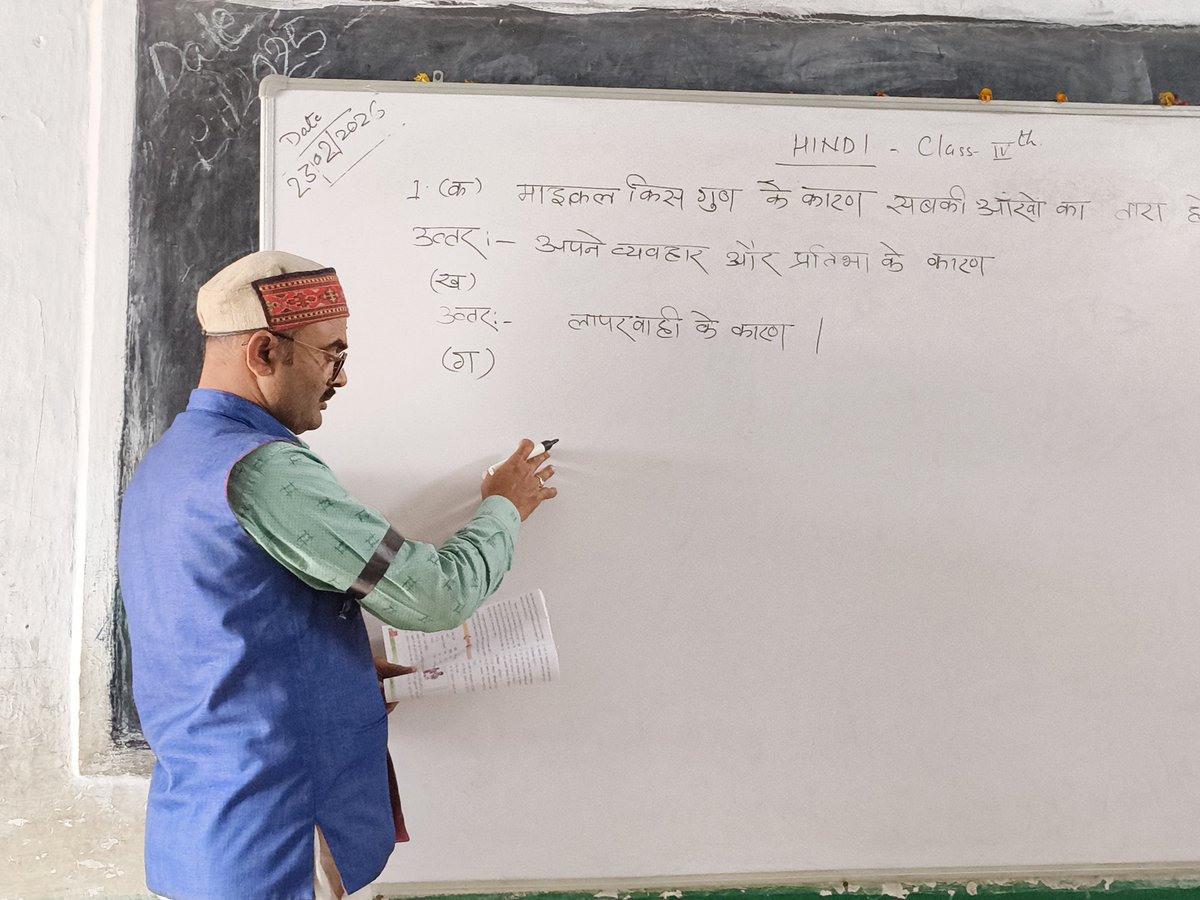 Date
Date
23.02.2026
HINDI - Class- IVth
1. (क) माइकल किस गुण के कारण सबकी आंखो का तारा है
उत्तर:- अपने व्यवहार और प्रतिभा के कारण
(ख)
उत्तर:- लापरवाही के कारण |
(ग)